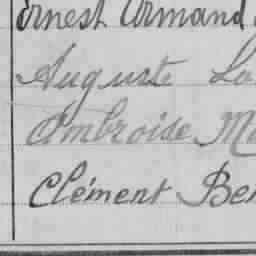 Ernest Armand
Auguste La
Ambroise Ma
Clément Ber